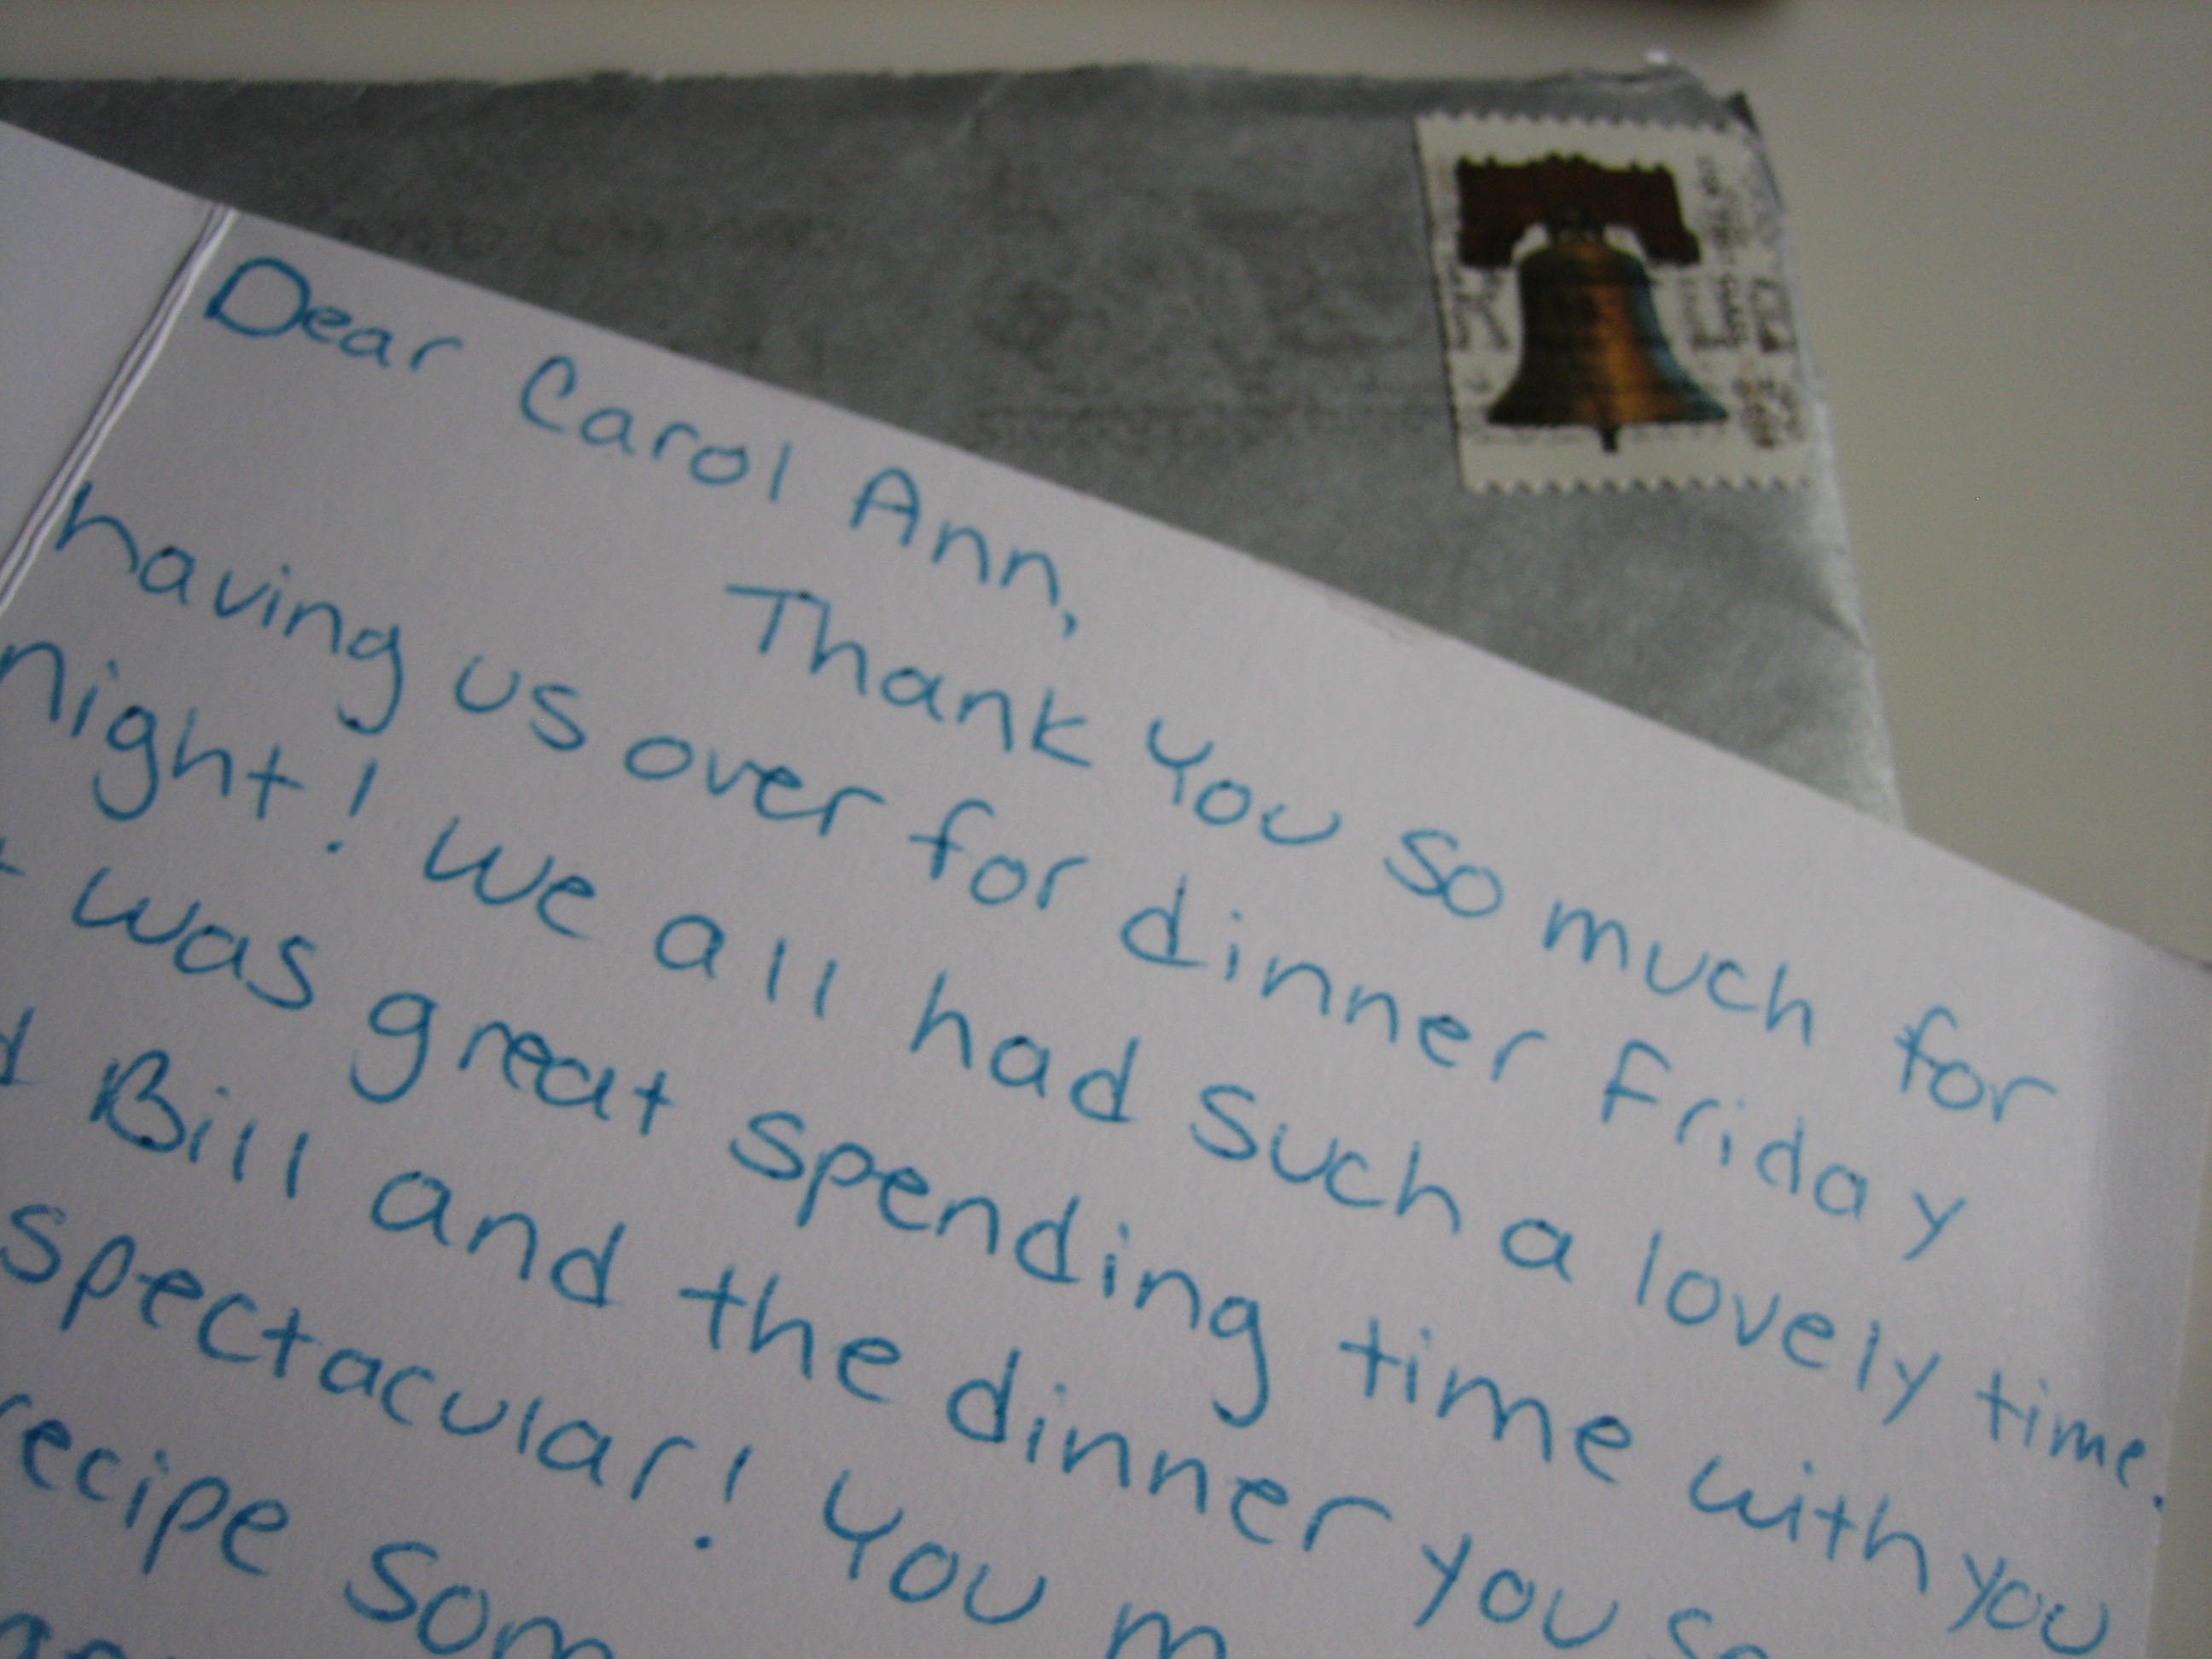 Dear Carol Ann,
Thank you so much for
having us over for dinner Friday
night! We all had such a lovely time.
was great spending time with you
Bill and the dinner you
spectacular! You
recipe